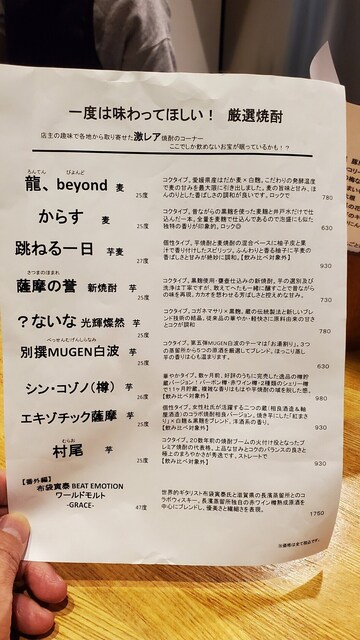 一度は味わってほしい！ 厳選焼酎
店主の趣味で各地から取り寄せた激レア焼酎のコーナー
ここでしか飲めないお宝が眠っているかも！？
ろんてん びよんど
龍、beyond 麦 25度
コクタイプ、愛媛県産はだか麦×白麹。こだわりの発酵温度
で麦の甘みを最大限に引き出しました。麦の旨味と甘み、ほ
んのりとした香ばしさの調和が良いです。ロックで
780
からす 麦 25度
コクタイプ、昔ながらの黒麹を使った麦麹と井戸水だけで仕
込んだ一本。全量を麦で仕込んであるので泡盛にも似た
独特の香りが印象的。ロック◎
630
跳ねる一日 芋麦 27度
個性タイプ、芋焼酎と麦焼酎の混合ベースに柚子皮と果
汁で香り付けしたスピリッツ。ふんわりと香る柚子に芋麦の
香ばしさと甘みが絶妙に調和。【飲み比べ対象外】
930
さつまのほまれ
薩摩の誉 新焼酎 芋 25度
コクタイプ、黒麹使用・甕壺仕込みの新焼酎。芋の選別及び
洗浄は丁寧ですが、敢えてへたも一緒に醸すことで昔ながら
の味を再現。カカオを想わせる芳ばしさと控えめな甘み。
730
？ないな 光輝燦然 芋 25度
コクタイプ、コガネマサリ×黒麹。蔵の伝統製法と新しいブ
レンド技術の結晶。従来品の華やか・軽快さに原料由来の甘さ
とコクが調和
780
べっせんむげんしらなみ
別撰MUGEN白波 芋 25度
コクタイプ、第五弾MUGEN白波のテーマは「お湯割り」。3つ
の蒸留所から6つの原酒を厳選してブレンド。ほっこり蒸し
芋の香りは心も温まります。
630
シン・コゾノ（樽） 芋 28度
華やかタイプ、数ヶ月前、好評のうちに完売した逸品の樽貯
蔵バージョン！バーボン樽・赤ワイン樽・2種類のシェリー樽
で11ヶ月貯蔵。複雑な香りはもはや芋焼酎の域を制した感。
【飲み比べ対象外】
980
エキゾチック薩摩 芋 25度
個性タイプ、女性杜氏が活躍する二つの蔵（相良酒造＆軸
屋酒造）のコラボ焼酎独自バージョン。焼き芋にした「紅まさ
り」×白麹＆黒麹をブレンド。洋酒系の香り。
【飲み比べ対象外】
930
むらお
村尾 芋 25度
コクタイプ、20数年前の焼酎ブームの火付け役となったプ
レミア焼酎の代表格。上品な甘みとコクのバランスの良さと
極上のまろやかさが秀逸です。ストレートで
【飲み比べ対象外】
930
【番外編】
布袋寅泰 BEAT EMOTION
ワールドモルト
-GRACE- 47度
世界的ギタリスト布袋寅泰氏と滋賀県の長濱蒸留所とのコ
ラボウィスキー。長濱蒸留所独自の赤ワイン樽熟成原酒を
中心にブレンドし、優美さと繊細さを表現。
1750
※価格は全て税込です。